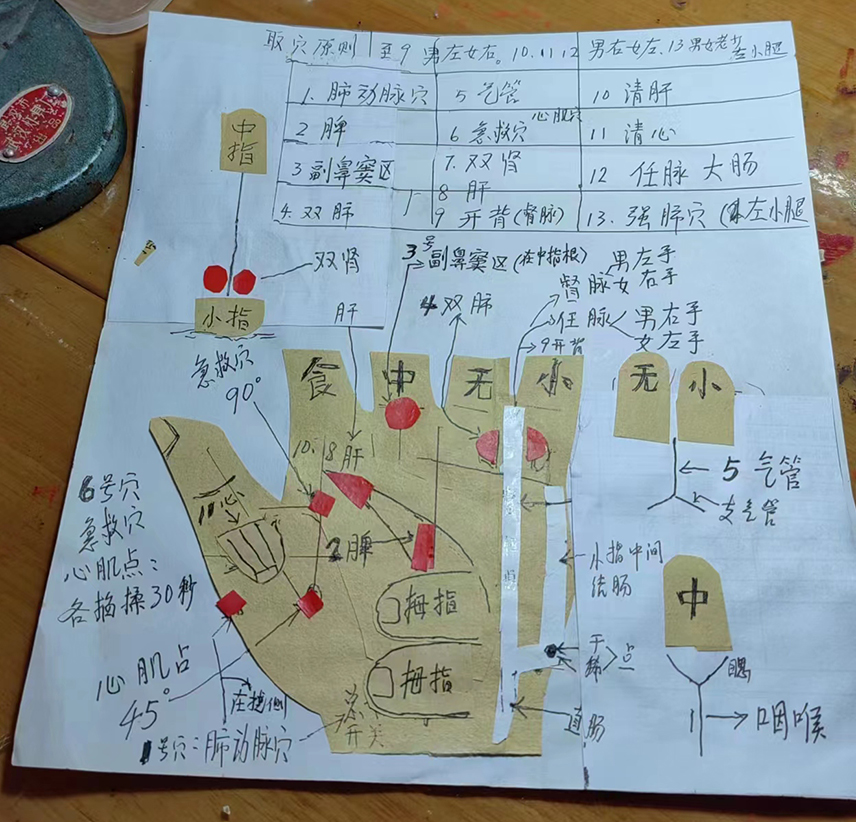 取穴原则 1至9 男左女右。10.11.12 男右女左、13男女老少左小腿
1. 肺动脉穴 5 气管 10 清肝
2 脾 6 急救穴 心肌穴 11 清心
3 副鼻窦区 7. 双肾 12 任脉 大肠
8 肝
4. 双肺 9 开背(督脉) 13. 强肺穴 左小腿
中指
双肾
小指
3号副鼻窦区(在中指根)
男左手
督脉女右手
4双肺
任脉
男右手
女左手
9开背
肝
急救穴
90°
食 中 无 小
无 小
10. 8肝
5气管
支气管
6号穴
急救穴
心肌点:
各掐揉30秒
11心
2脾
小指中间
结肠
中
拇指
拇指
点
咽喉
心肌点
45°
直肠
开关
1号穴:肺动脉穴